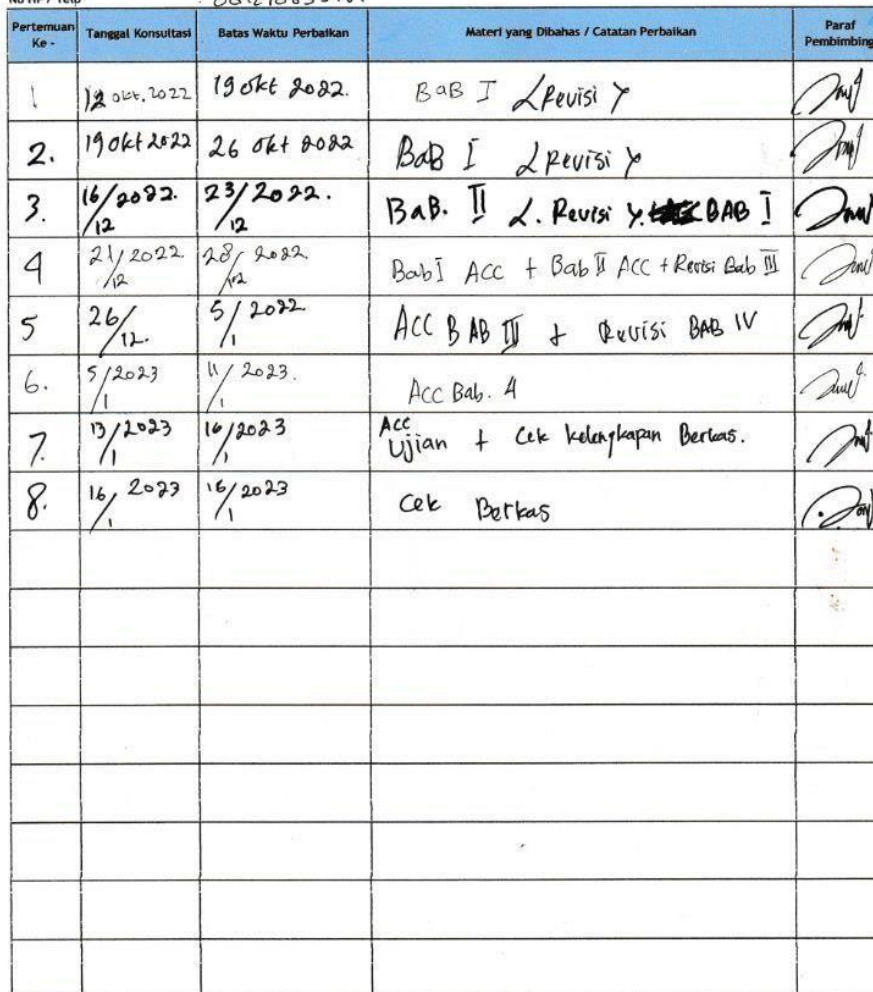 No HP / Telp
Pertemuan Ke -
Tanggal Konsultasi
Batas Waktu Perbaikan
Materi yang Dibahas / Catatan Perbaikan
Paraf Pembimbing
1 12 okt. 2022 19 okt 2022. BaB I <Revisi>
2. 19 okt 2022 26 okt 2022 BaB I <Revisi>
3. 16/12 2022. 23/12 2022. BaB. II <. Revisi >. BAB I
4 21/12 2022 28/12 2022. Bab I ACC + Bab II ACC + Revisi Bab III
5 26/12. 5/1 2022 ACC BAB III + Revisi BAB IV
6. 5/1 2023 11/1 2023. Acc Bab. 4
7. 13/1 2023 16/1 2023 Acc Ujian + Cek kelengkapan Berkas.
8. 16/1 2023 16/1 2023 Cek Berkas